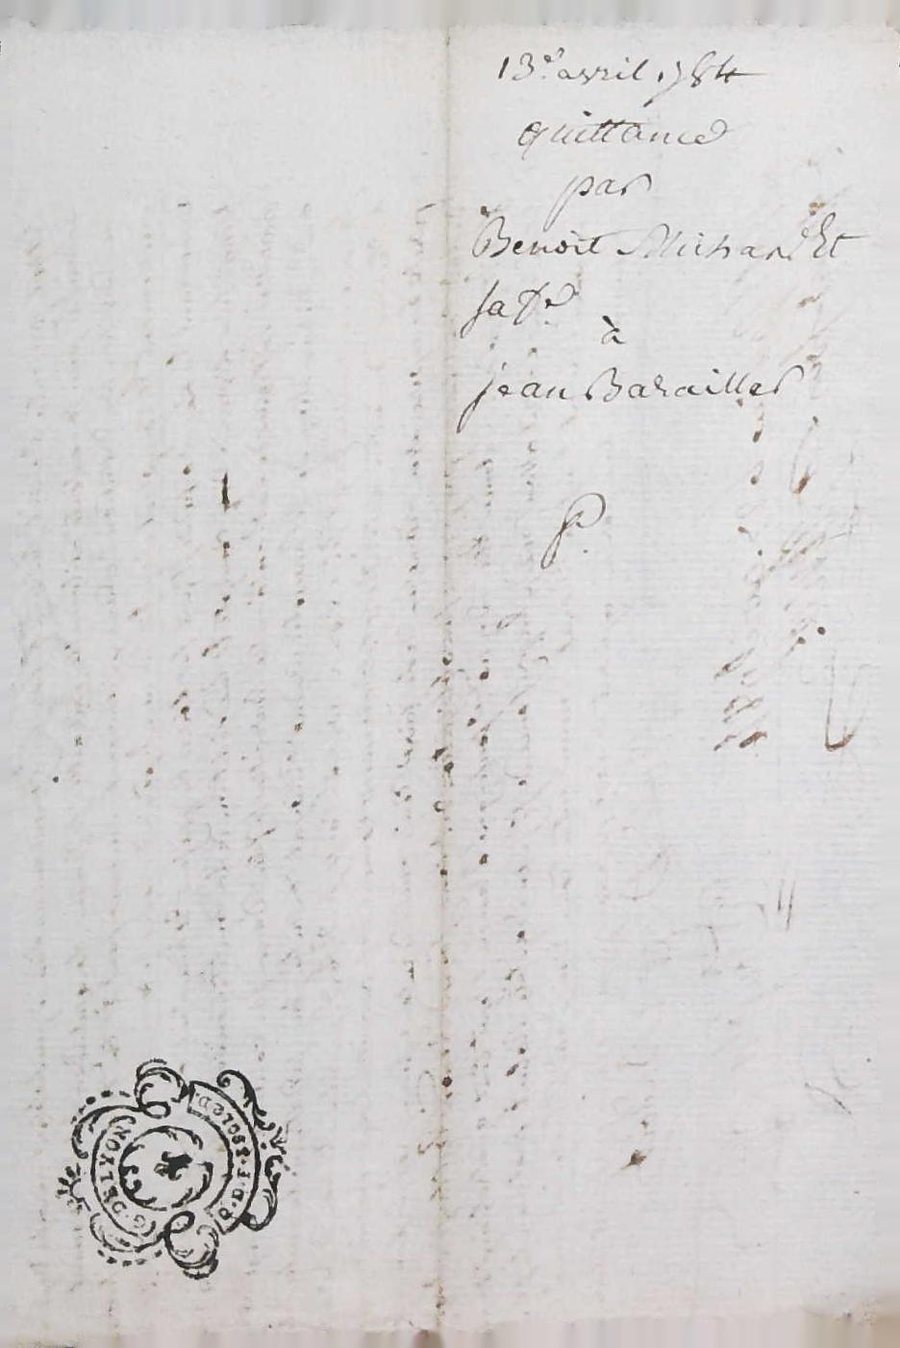 13.e avril 1784
quittance
par
Benoit Michard Et
sa fe
à
jean Barailler
P.
G. DE LYON